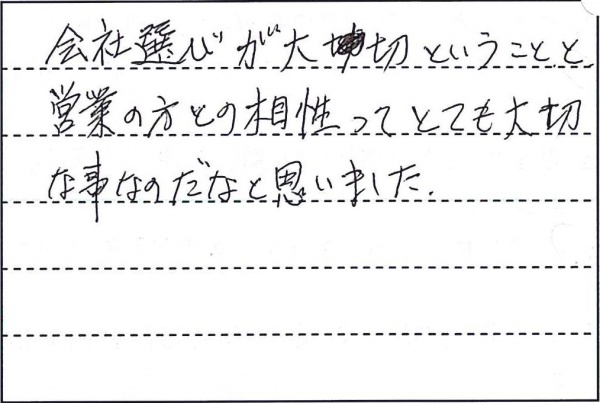 会社選びが大切ということと
営業の方との相性ってとても大切
な事なのだなと思いました.